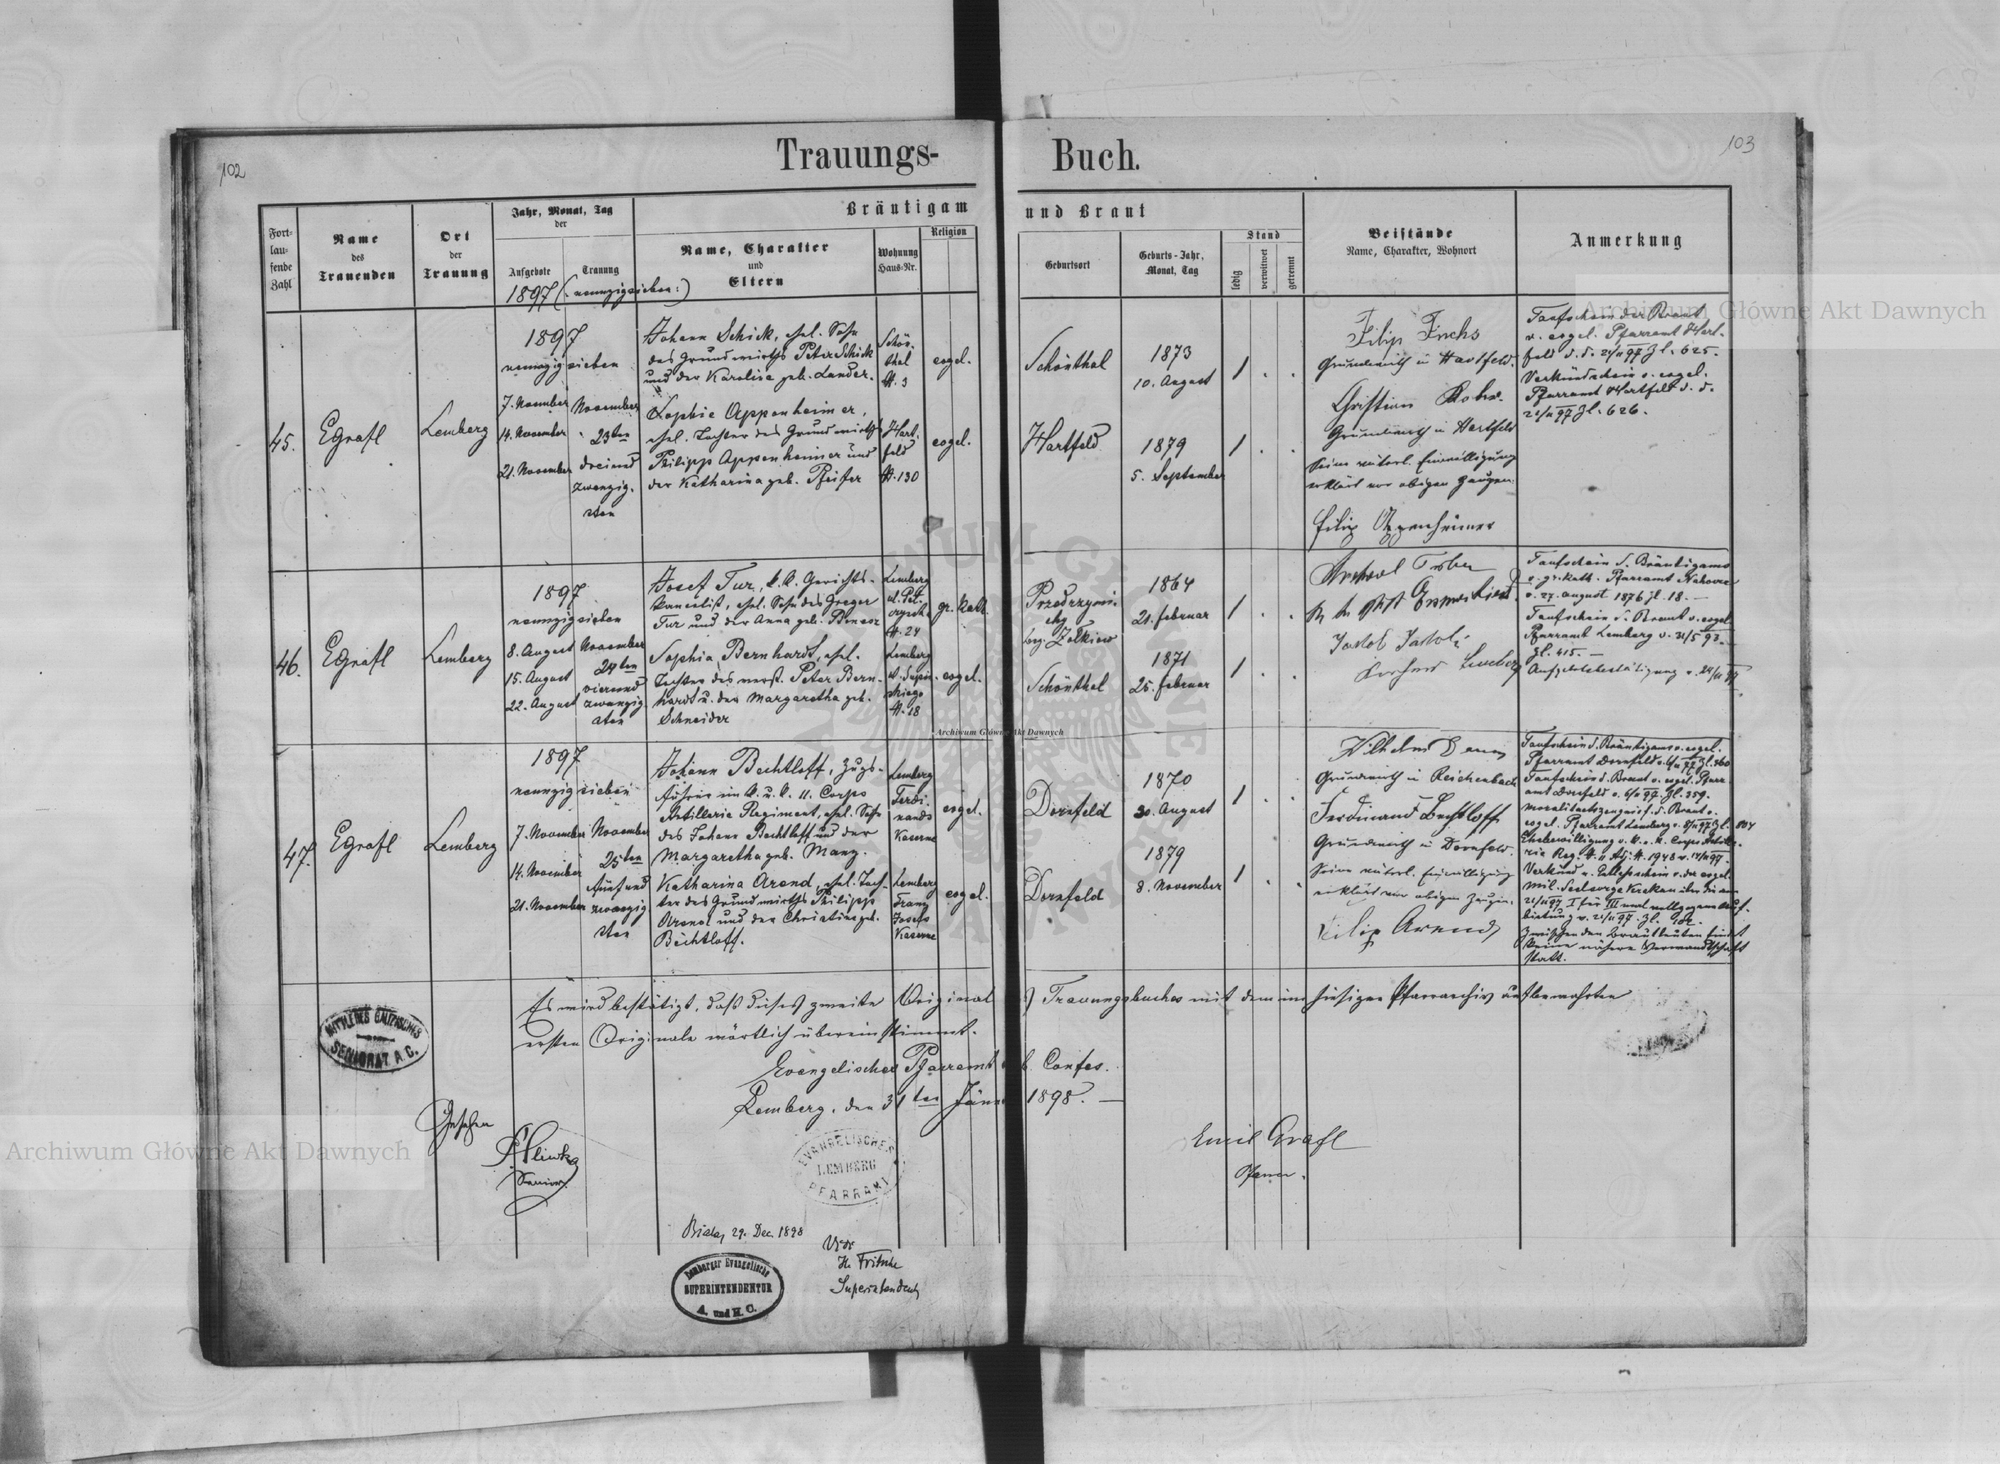 102
103
Trauungs-
Buch.
Fort-
lau-
fende
Zahl
Name
des
Trauenden
Ort
der
Trauung
Jahr, Monat, Tag
der
Aufgebote
Trauung
1897 (: neunzigsieben :)
Bräutigam
und Braut
Name, Charakter
und
Eltern
Wohnung
Haus-Nr.
Religion
Geburtsort
Geburts-Jahr,
Monat, Tag
Stand
ledig
verwitwet
getrennt
Beistände
Name, Charakter, Wohnort
Anmerkung
45.
EGrafl
Lemberg
1897
neunzigsieben
7. November
14. November
21. November
November
23ten
dreiund
zwanzig-
sten
Johann Schick, ehel. Sohn
des Grundwirths Peter Schick
und der Karoline geb. Lander.
Schön-
thal
N. 3
evgel.
Sophie Appenheimer,
ehel. Tochter des Grundwirths
Philipp Appenheimer und
der Katharina geb. Pfeifer
Hart-
feld
N. 130
evgel.
Schönthal
1873
10. August
1
Hartfeld
1879
5. September
1
Filip Fuchs
Grundwirth in Hartfeld.
Christian
Grundwirth in Hartfeld
Seine väterl. Einwilligung
erklärt vor obigen Zeugen:
Filip Oppenheimer
Taufschein der Braut
v. evgel. Pfarramt Hart-
feld d. d. 21/11 97 Zl. 625.
Verkündschein v. evgel.
Pfarramt Hartfeld d. d.
21/11 97 Zl. 626.
46.
EGrafl
Lemberg
1897
neunzigsieben
8. August
15. August
22. August
November
24ten
vierund
zwanzig-
sten
Josef Tur, k. k. Gerichts-
kanzelist, ehel. Sohn des Gregor
Tur und der Anna geb.
Lemberg
N. 24
gr. kath.
Sophia Bernhardt, ehel.
Tochter des verst. Peter Bern-
hardt u. der Margaretha geb.
Schneider
Lemberg
N. 18
evgel.
bzg. Żółkiew
1864
21. Februar
1
Schönthal
1871
25. Februar
1
Jakob
Lemberg
Taufschein d. Bräutigams
v. gr. kath. Pfarramt
v. 27. August 1876 Zl. 18. —
Taufschein d. Braut v. evgel.
Pfarramt Lemberg v. 31/5 93.
Zl. 415. —
Aufgebotsbestätigung v. 24/11 97
47.
EGrafl
Lemberg
1897
neunzigsieben
7. November
14. November
21. November
November
25ten
fünfund
zwanzig
sten
Johann Bechtloff, Zugs-
führer im k. u. k. 11. Corps
Artillerie Regiment, ehel. Sohn
des Johann Bechtloff und der
Margaretha geb. Manz.
Lemberg
Ferdi-
nands
Kaserne
evgel.
Katharina Arend, ehel. Toch-
ter des Grundwirths Philipp
Arend und der Christine geb.
Bechtloff.
Lemberg
Franz
Josefs
Kaserne
evgel.
Dornfeld
1870
30. August
1
Dornfeld
1879
8. November
1
Wilhelm
Grundwirth in Reichenbach
Ferdinand Bechtloff
Grundwirth in Dornfeld.
Seine väterl. Einwilligung
erklärt vor obigen Zeugen.
Filip Arend
Taufschein d. Bräutigams v. evgel.
Pfarramt Dornfeld v. 6/11 97 Zl. 360
Taufschein d. Braut v. evgel. Pfarr
amt Dornfeld v. 6/11 97. Zl. 359.
Moralitätszeugniss d. Braut v.
evgel. Pfarramt Lemberg v. 8/11 97 Zl. 504
Ehebewilligung v. k. u. k. Corps Artille-
rie Reg. N. 11 Adj. N. 1948 v. 14/11 97.
Verkünd u. v. der evgel.
Mil. Seelsorge
21/11 97
bietung v. 21/11 97. Zl.
Zwischen den Brautleuten findet
keine nähere Verwandtschaft
statt.
Es wird bestätigt, daß dieses zweite Original d) Trauungsbuches mit dem im hiesigen Pfarrarchiv aufbewahrten
ersten Originale wörtlich übereinstimmt.
Evangelisches Pfarramt Confes.
Lemberg, den 31ten Jänner 1898. —
MITTLERES GALIZISCHES
SENIORAT A. C.
Gesehen
Senior.
EVANGELISCHES
LEMBERG
PFARRAMT
Emil Grafl
Pfarrer.
Biala, 29. Dec. 1898
Vidi
H. Fritsche
Superintendent
Lemberger Evangelische
SUPERINTENDENTUR
A. und H. C.
Archiwum Główne Akt Dawnych
Archiwum Główne Akt Dawnych
Archiwum Główne Akt Dawnych